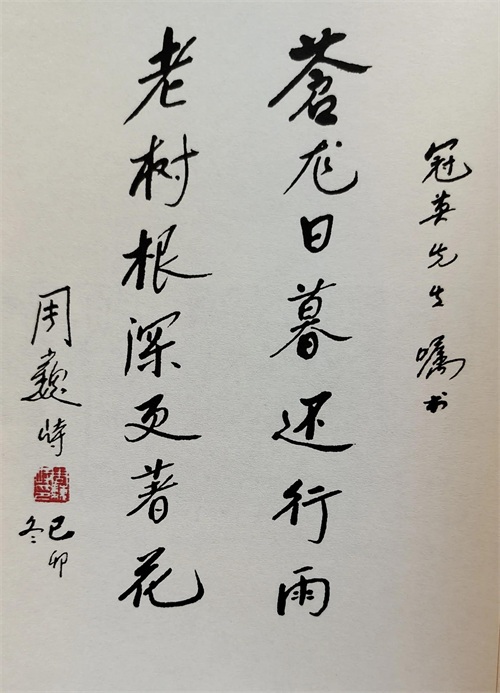 冠英先生嘱书
蒼龙日暮还行雨
老树根深更著花
周巍峙
己卯冬